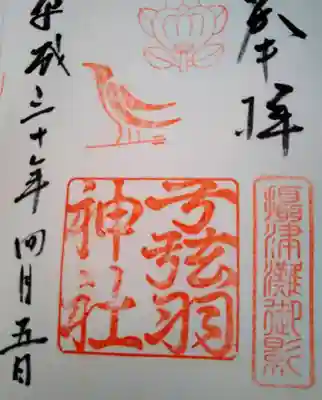 奉拝
摂津灘御影
弓弦羽
神社
平成三十年四月五日